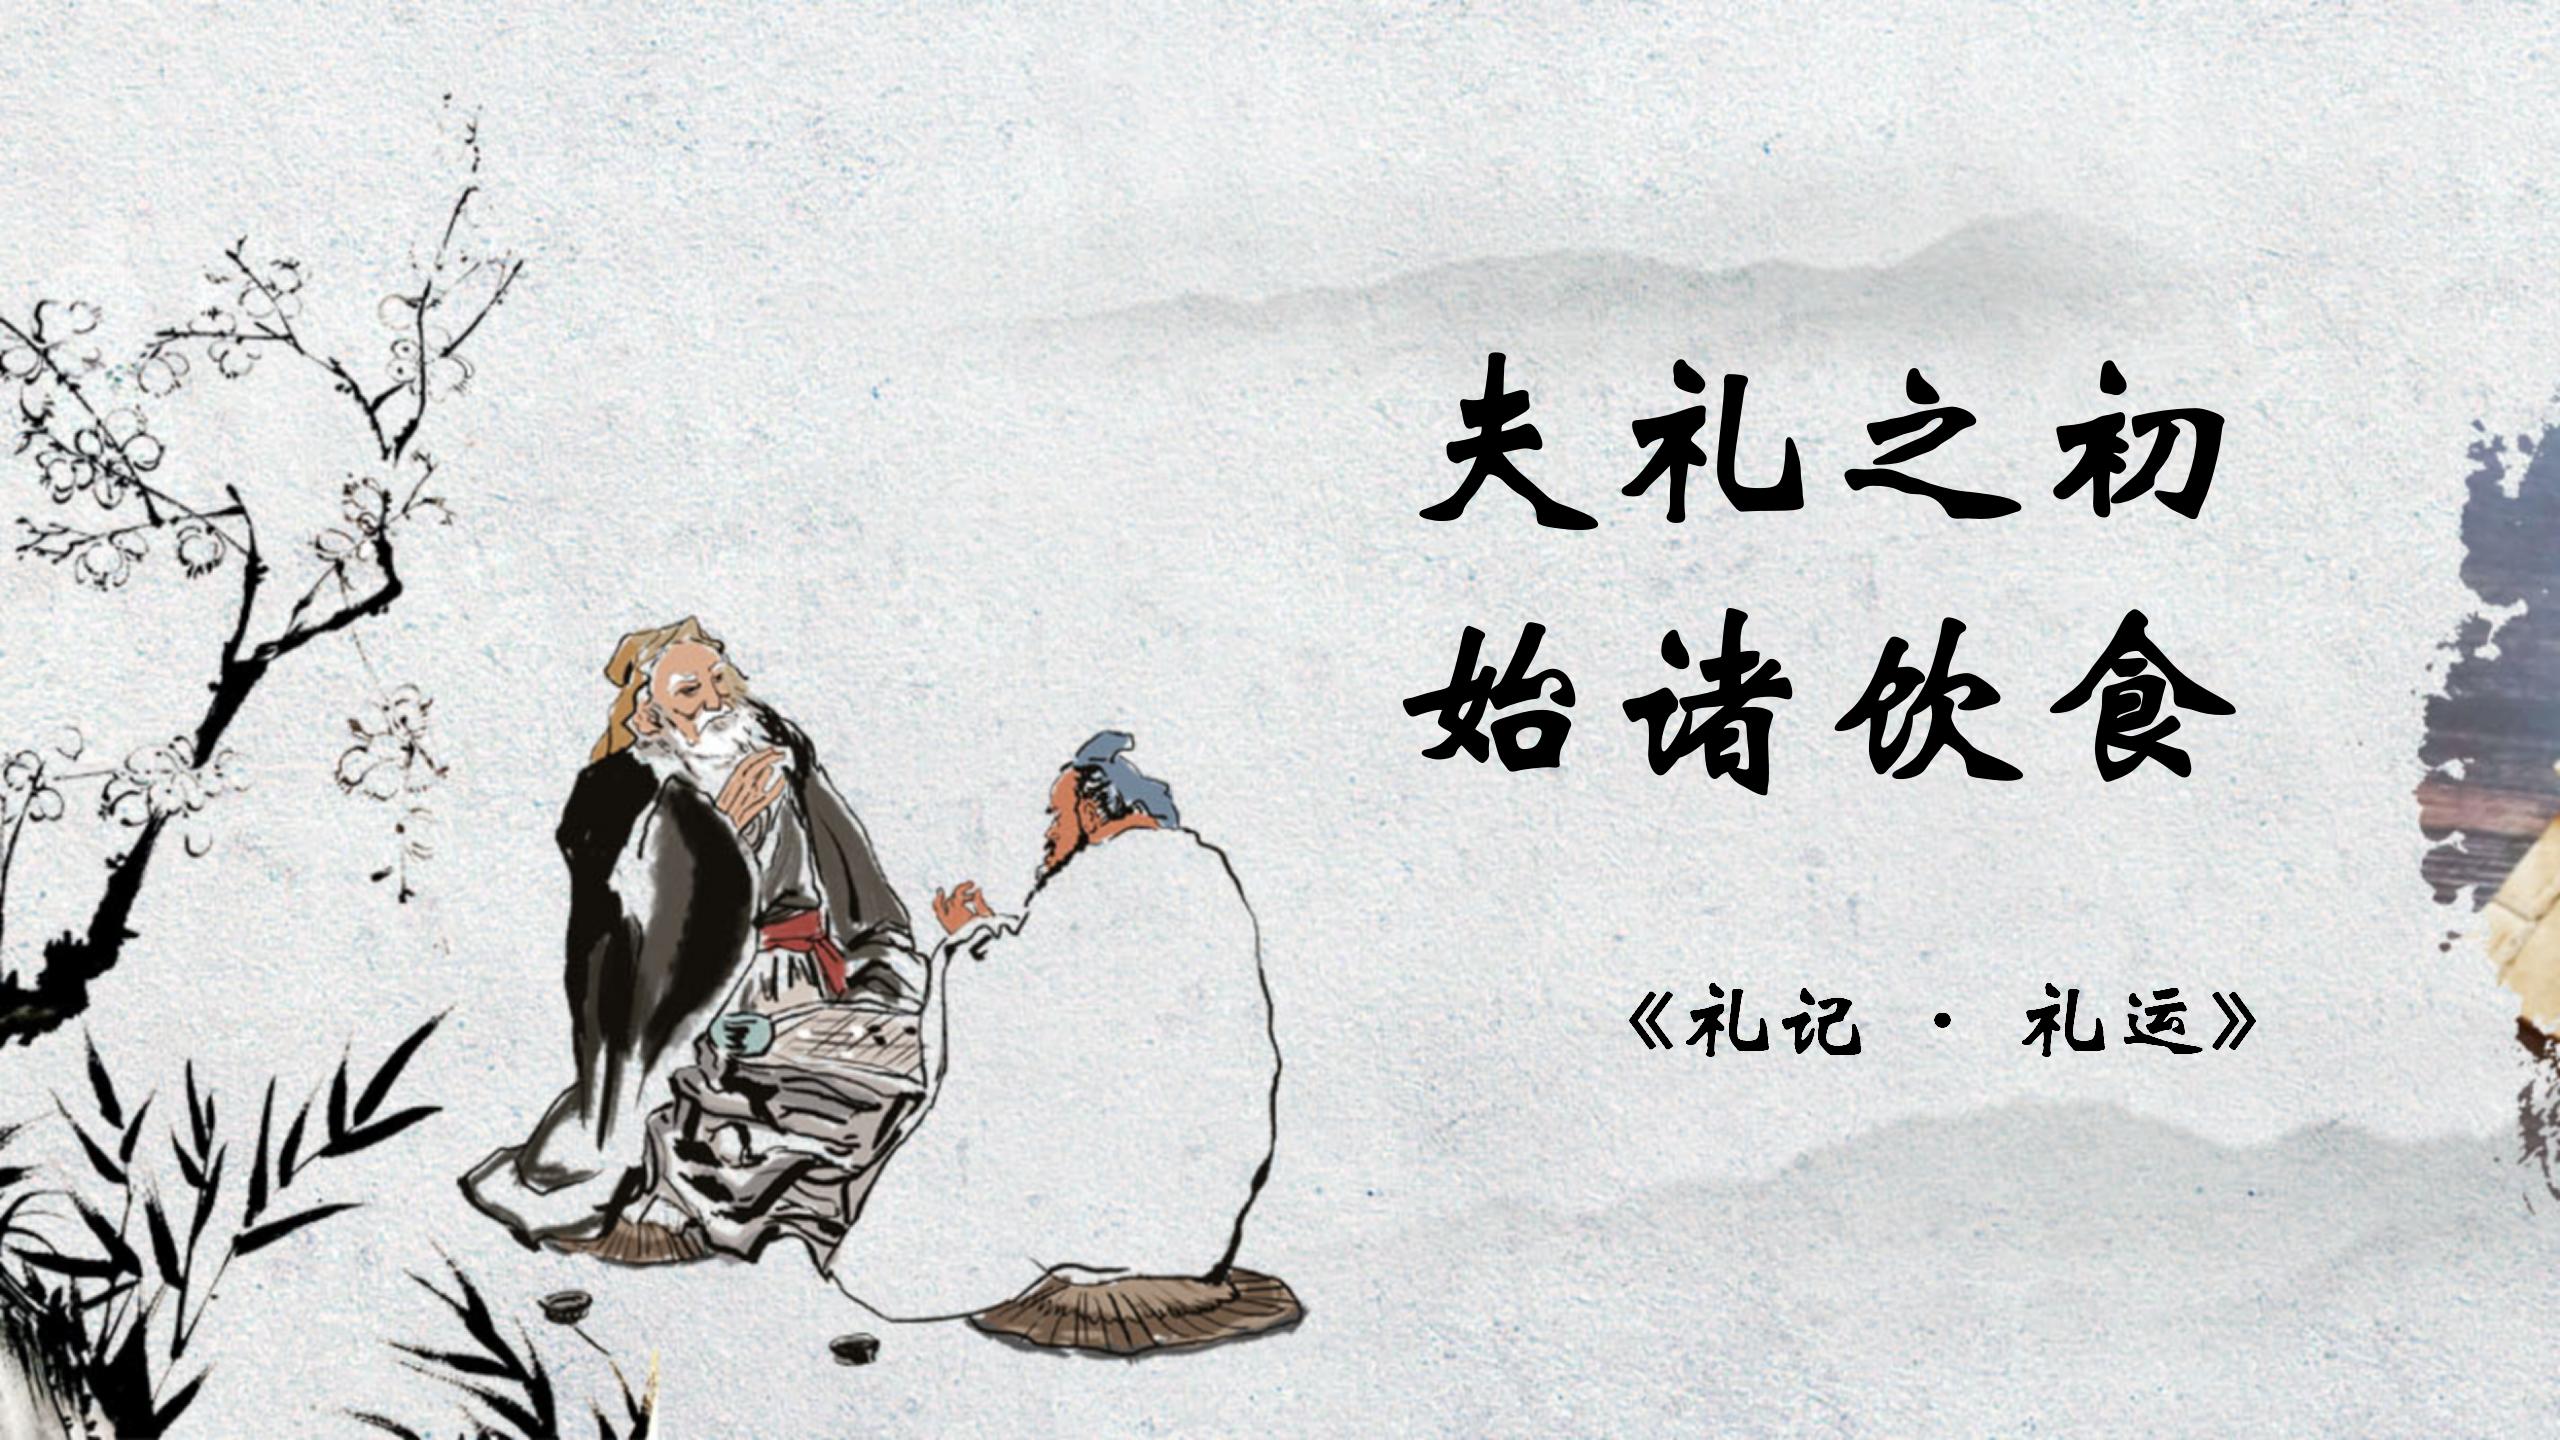 夫礼之初
始诸饮食
《礼记 · 礼运》